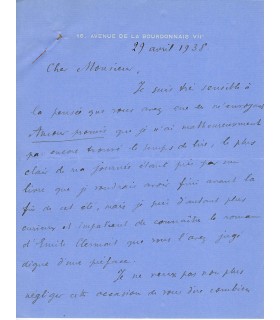 16, AVENUE DE LA BOURDONNAIS VIIᵉ
29 avril 1938
Cher Monsieur,
Je suis très sensible à
la pensée que vous avez eue de m'envoyer
Amour promis que je n'ai malheureusement
pas encore trouvé le temps de lire, le plus
clair de ma journée étant pris par un
livre que je voudrais avoir fini avant la
fin de cet été, mais je suis d'autant plus
curieux et impatient de connaître le roman
d'Emile Clermont que vous l'avez jugé
digne d'une préface.
Je ne veux pas non plus
négliger cette occasion de vous dire combien